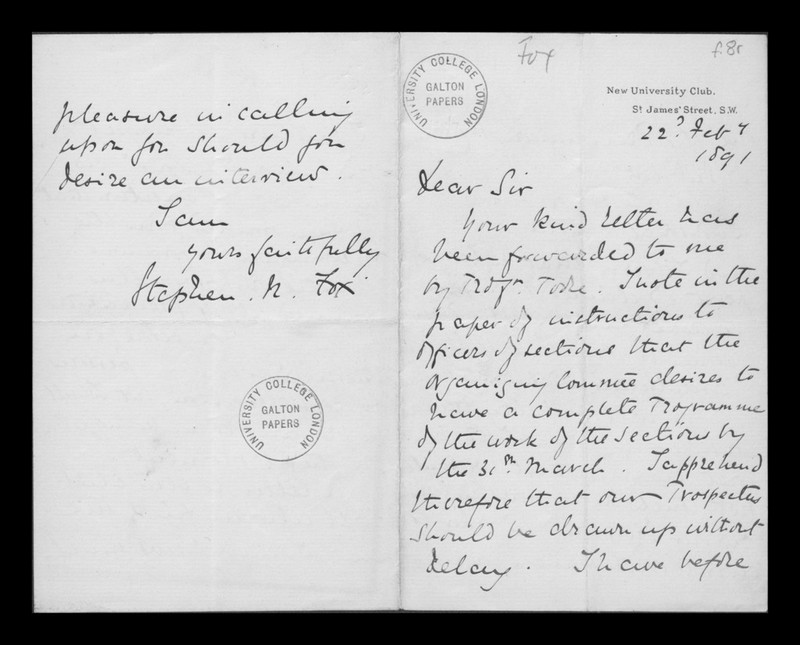 Fox
f.8r
UNIVERSITY COLLEGE LONDON
GALTON
PAPERS
New University Club.
St James' Street, S.W.
22d Feby
1891
Dear Sir
Your kind letter has
been forwarded to me
by Profr. Poore. I note in the
paper of instructions to
officers of sections that the
organizing Committee desires to
have a complete Programme
of the work of the sections by
the 31st March. I apprehend
therefore that our Prospectus
should be drawn up without
delay. I have before
pleasure in calling
upon you should you
desire an interview.
I am
yours faithfully
Stephen. N. Fox
UNIVERSITY COLLEGE LONDON
GALTON
PAPERS